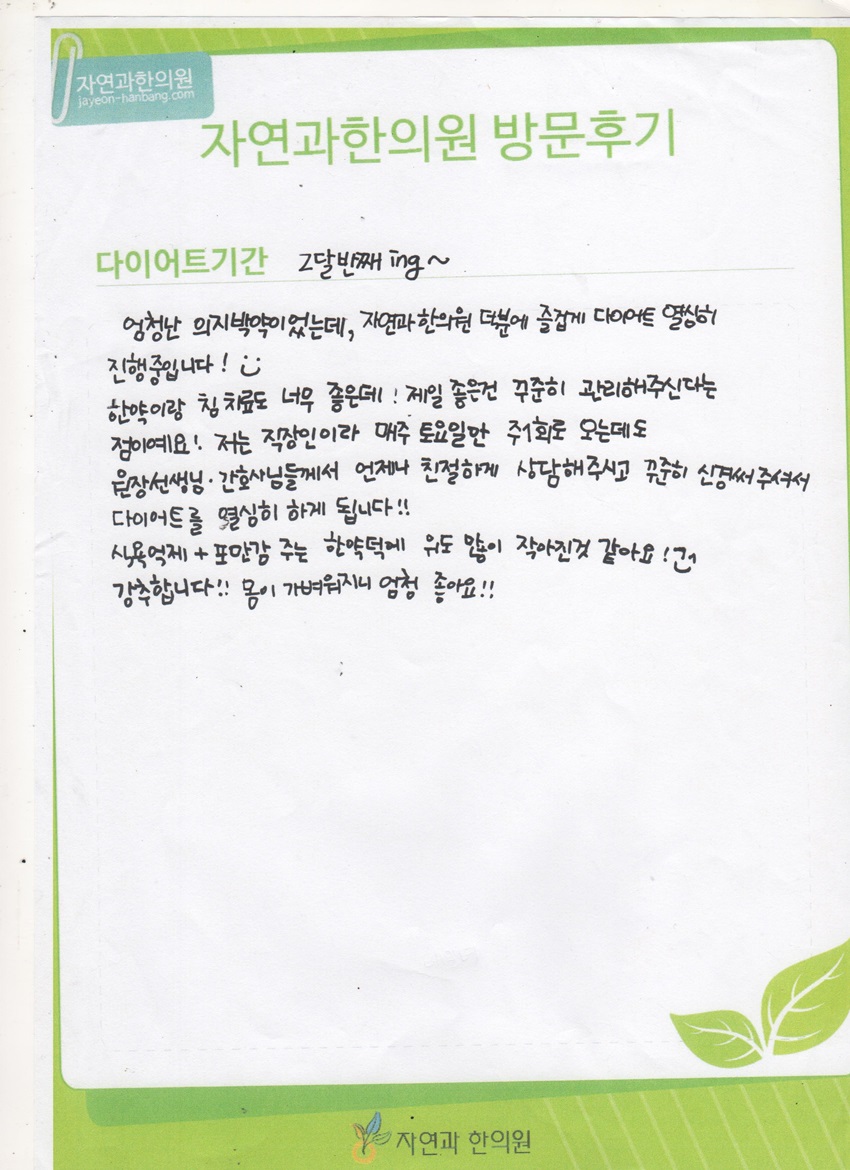 자연과한의원
jayeon-hanbang.com
자연과한의원 방문후기
다이어트기간 2달반째 ing~
엄청난 의지박약이었는데, 자연과한의원 덕분에 즐겁게 다이어트 열심히
진행중입니다!
한약이랑 침치료도 너무 좋은데! 제일 좋은건 꾸준히 관리해주신다는
점이예요! 저는 직장인이라 매주 토요일만 주1회로 오는데도
원장선생님·간호사님들께서 언제나 친절하게 상담해주시고 꾸준히 신경써주셔서
다이어트를 열심히 하게 됩니다!!
식욕억제 + 포만감 주는 한약덕에 위도 많이 작아진것 같아요!
강추합니다!! 몸이 가벼워지니 엄청 좋아요!!
자연과 한의원